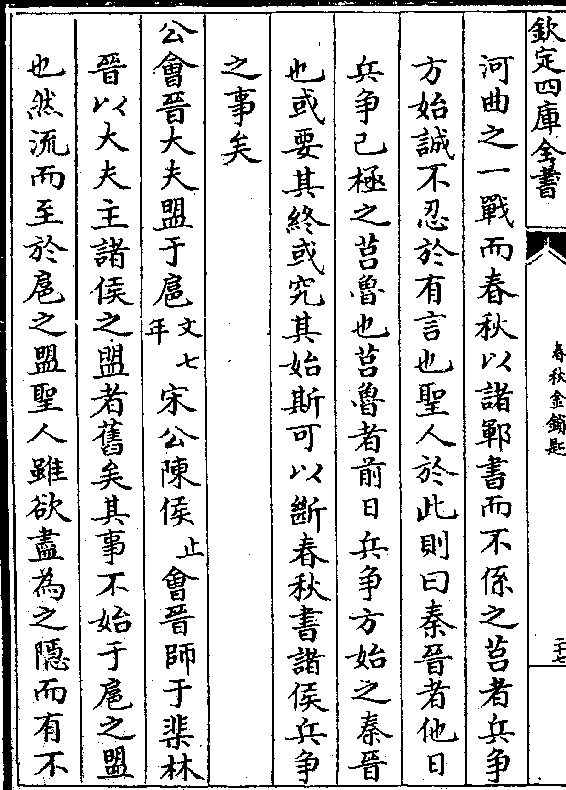 欽定四庫全書
春秋金鎖匙
二十七
河曲之一戰而春秋以諸鄆書而不係之莒者兵争
方始誠不忍於有言也聖人於此則曰秦晉者他日
兵争已極之莒魯也莒魯者前日兵争方始之秦晉
也或要其終或究其始斯可以斷春秋書諸侯兵争
之事矣
公會晉大夫盟于扈文七年宋公陳侯止會晉師于棐林
晉以大夫主諸侯之盟者舊矣其事不始于扈之盟
也然流而至於扈之盟聖人雖欲盡為之隱而有不